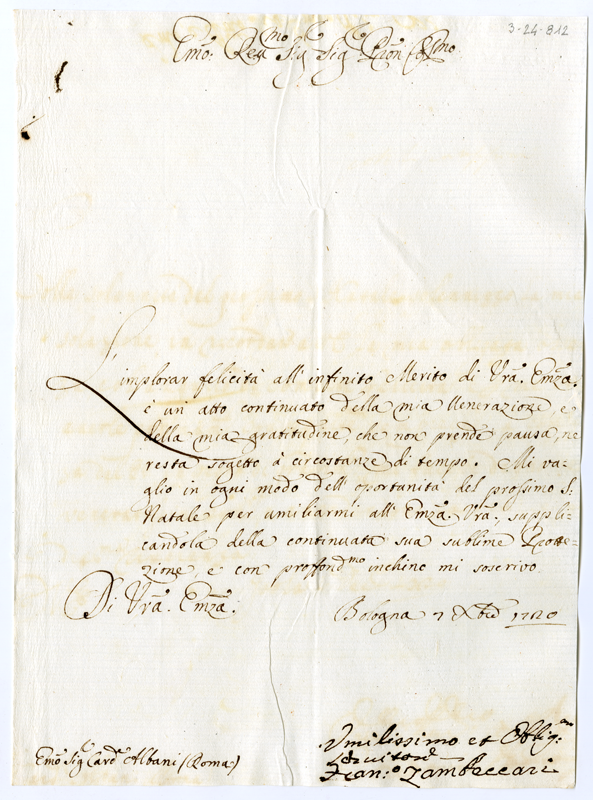 3-24-812
Emo: Revmo Sig Sig Pron Colmo
L'implorar felicità all'infinito Merito di Vra. Emza.
è un atto continuato della mia Venerazione, e
della mia gratitudine, che non prende pausa, ne
resta sogetto à circostanze di tempo. Mi va-
glio in ogni modo dell'oportunità del prossimo S:
Natale per umiliarmi all'Emza. Vra., suppli-
candola della continuata sua sublime Protte-
zione, e con profondmo inchino mi soscrivo
Di Vra. Emza.
Bologna 7 Xbre 1720
Umilissimo et Obblig:mo
Servitore
Fran:o Zambeccari
Emo Sig Card Albani (Roma)